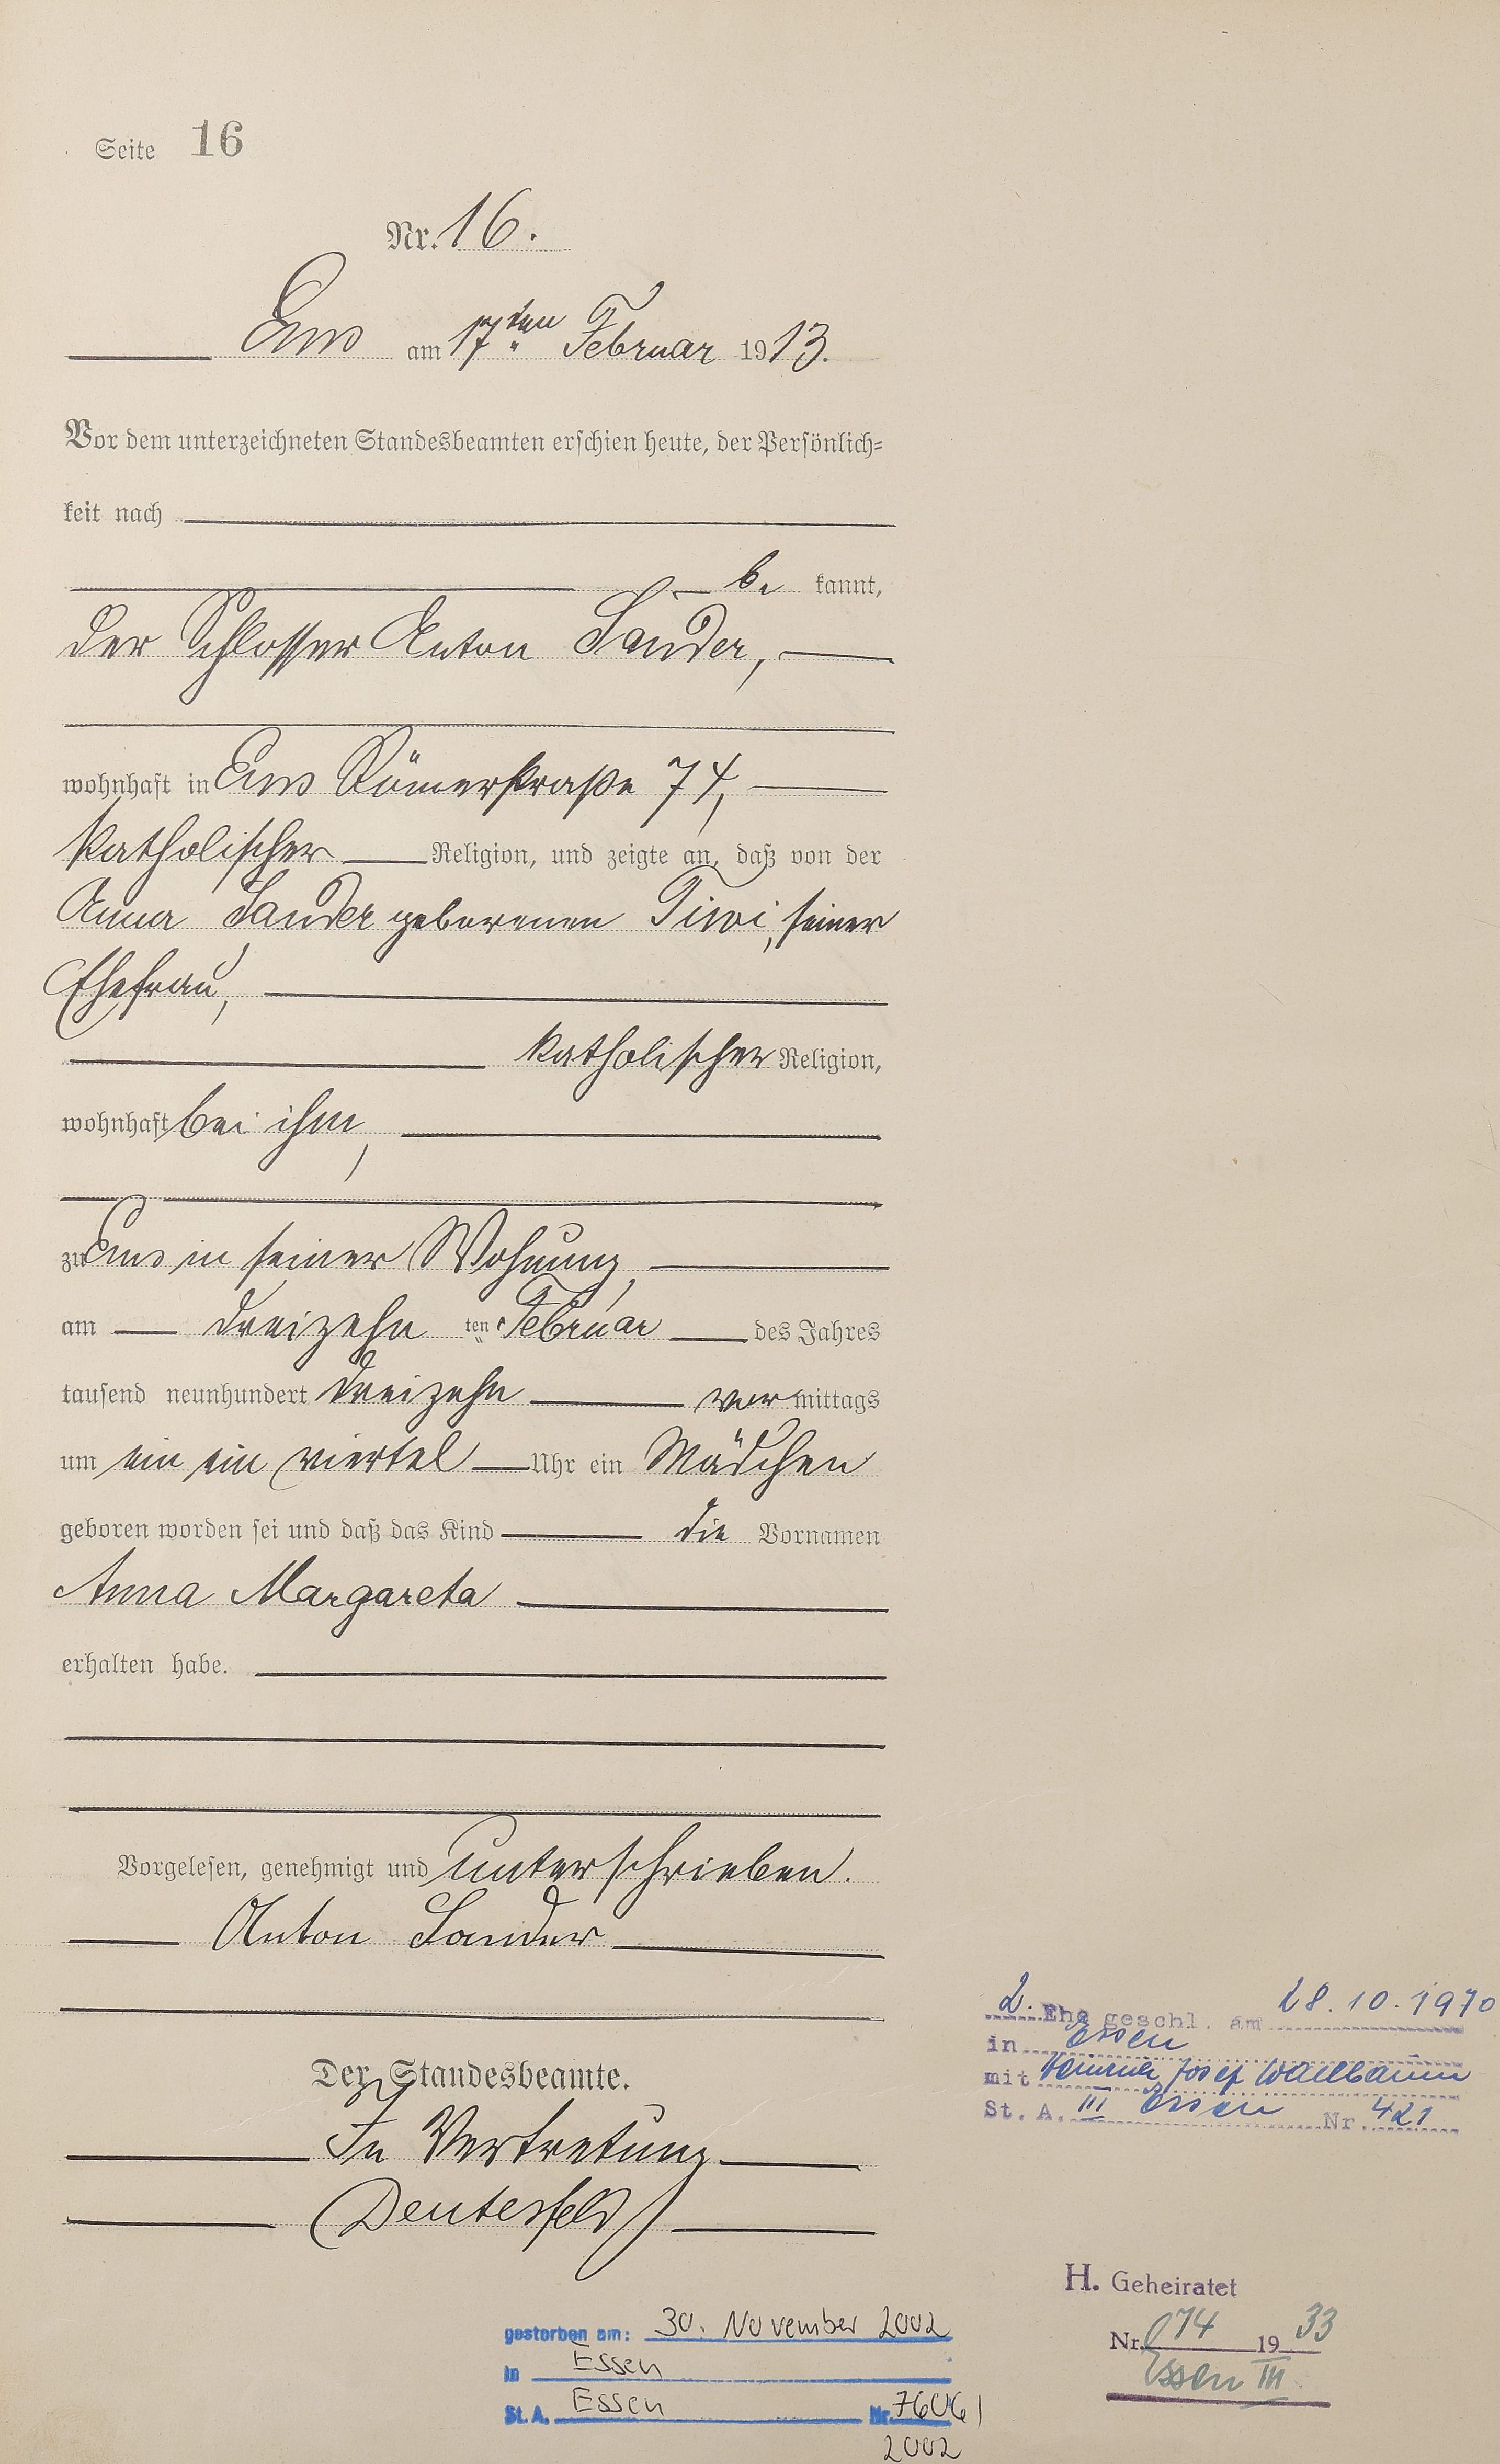 Seite 16
Nr. 16.
Ems am 17ten Februar 1913.
Vor dem unterzeichneten Standesbeamten erschien heute, der Persönlich=
keit nach
be kannt,
der Schlosser Anton Sander,
wohnhaft in Ems Römerstraße 74,
katholischer Religion, und zeigte an, daß von der
Anna Sander geborenen seiner
Ehefrau,
katholischer Religion,
wohnhaft bei ihm,
zu Ems in seiner Wohnung,
am dreizehn ten Februar des Jahres
tausend neunhundert dreizehn vor mittags
um ein ein viertel Uhr ein Mädchen
geboren worden sei und daß das Kind die Vornamen
Anna Margareta
erhalten habe.
Vorgelesen, genehmigt und unterschrieben.
Anton Sander
Der Standesbeamte.
In Vertretung
gestorben am: 30. November 2002
in Essen
St. A. Essen Nr. 7606/
2002
2. Ehe geschl. am 28.10.1970
in Essen
mit Josef Wallbaum
St. A. III Essen Nr. 421
H. Geheiratet
Nr. 074 1933
Essen III